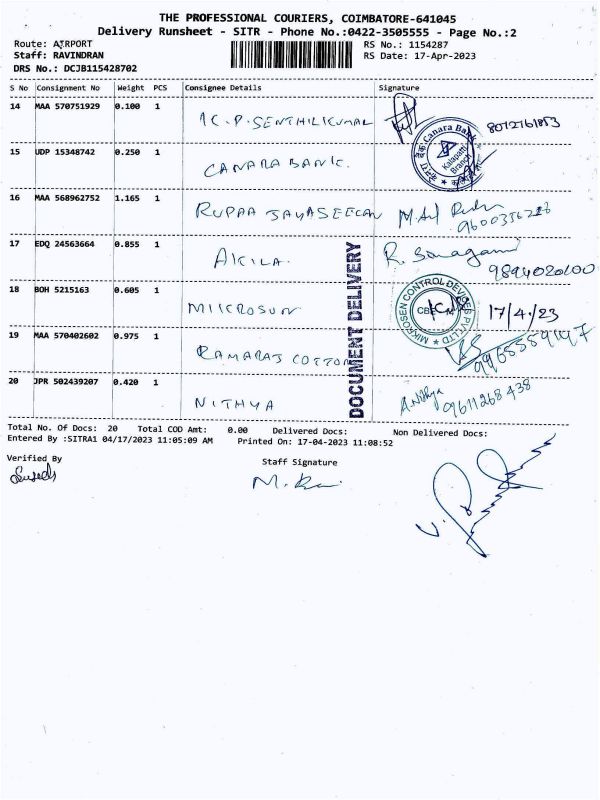 THE PROFESSIONAL COURIERS, COIMBATORE-641045
Delivery Runsheet - SITR - Phone No.:0422-3505555 - Page No.:2
Route: AIRPORT
RS No.: 1154287
Staff: RAVINDRAN
RS Date: 17-Apr-2023
DRS No.: DCJB115428702
S No Consignment No Weight PCS Consignee Details Signature
14 MAA 570751929 0.100 1 K.P. SENTHILKUMAR 8072761853
Canara Bank
Kalapatti
Branch
15 UDP 15348742 0.250 1 CANARA BANK.
16 MAA 568962752 1.165 1 RUPAA JAYASEELAN
17 EDQ 24563664 0.855 1 AKILA.
9894020600
DOCUMENT DELIVERY
18 BOH 5215163 0.605 1 MIKROSUN 17/4/23
MIKROSEN CONTROL DEVICES PVT LTD
CBE
19 MAA 570402602 0.975 1 RAMARAJ COTTON
20 JPR 502439207 0.420 1 NITHYA
9611268438
Total No. Of Docs: 20 Total COD Amt: 0.00 Delivered Docs: Non Delivered Docs:
Entered By :SITRA1 04/17/2023 11:05:09 AM Printed On: 17-04-2023 11:08:52
Verified By
Staff Signature